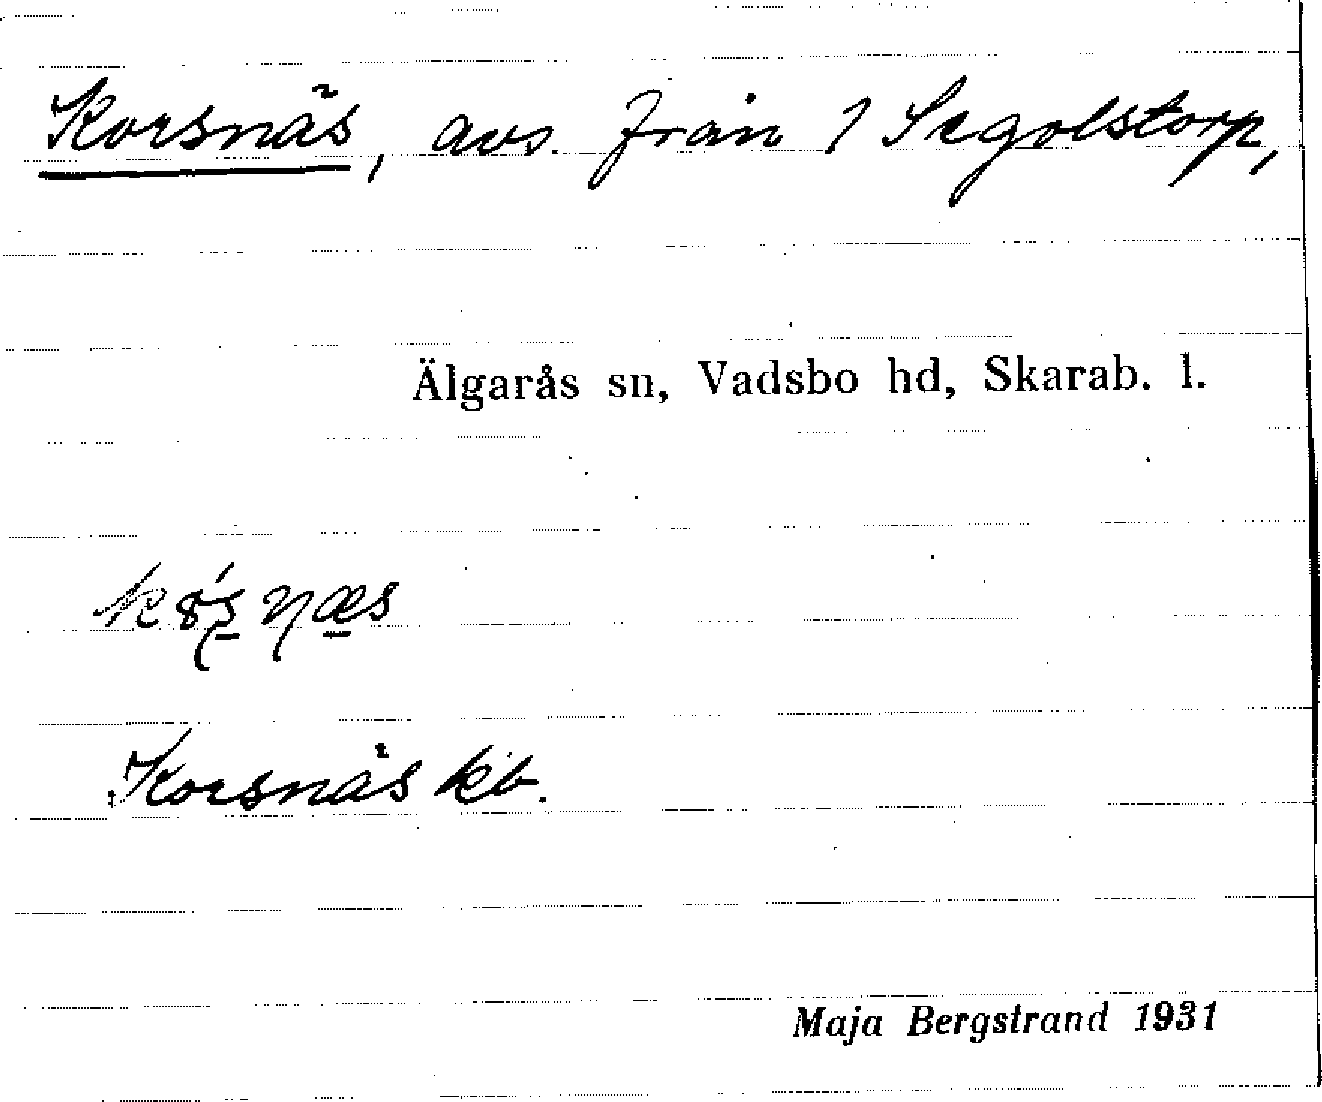 Korsnäs, avs. från 1 Segolstorp,
Älgarås sn, Vadsbo hd, Skarab. l.
Korsnäs kb.
Maja Bergstrand 1931